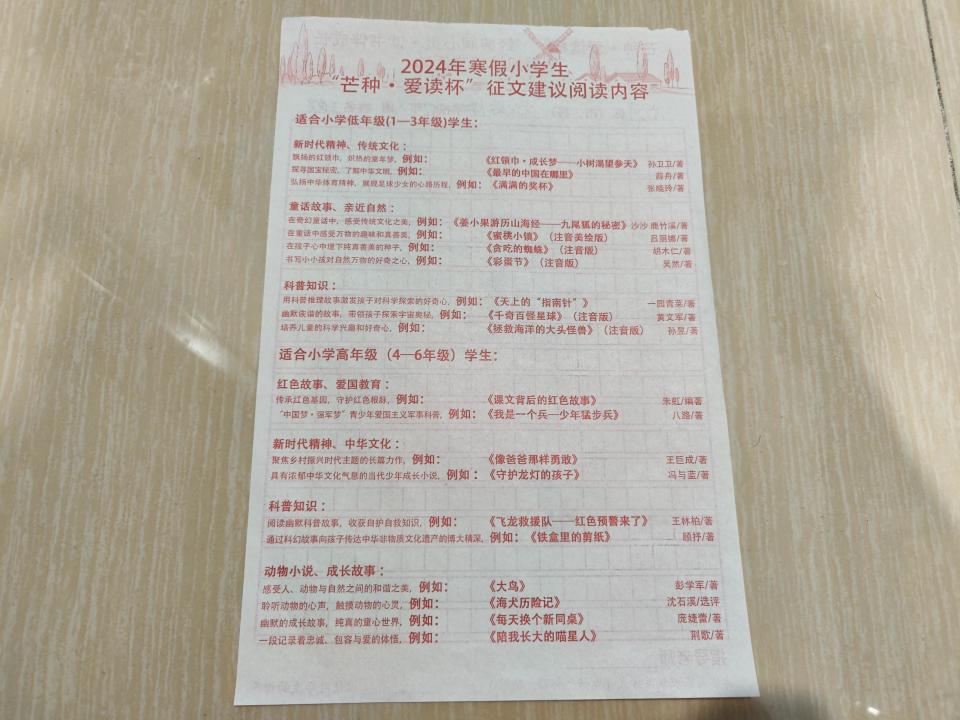 2024年寒假小学生
“芒种·爱读杯”征文建议阅读内容
适合小学低年级(1—3年级)学生：
新时代精神、传统文化：
飘扬的红领巾，炽热的童年梦，例如： 《红领巾·成长梦——小树渴望参天》 孙卫卫/著
探寻国宝秘密，了解中华文明，例如： 《最早的中国在哪里》 薛舟/著
弘扬中华体育精神，展现足球少女的心路历程，例如：《满满的奖杯》 张晓玲/著
童话故事、亲近自然：
在奇幻童话中，感受传统文化之美，例如：《姜小果游历山海经——九尾狐的秘密》沙沙 鹿竹溪/著
在童话中感受万物的趣味和真善美，例如： 《蜜桃小镇》（注音美绘版） 吕丽娜/著
在孩子心中埋下纯真善美的种子，例如： 《贪吃的蜘蛛》（注音版） 胡木仁/著
书写小小孩对自然万物的好奇之心，例如： 《彩蛋节》（注音版） 吴然/著
科普知识：
用科普推理故事激发孩子对科学探索的好奇心，例如：《天上的“指南针”》 一园青菜/著
幽默诙谐的故事，带领孩子探索宇宙奥秘，例如： 《千奇百怪星球》（注音版） 黄文军/著
培养儿童的科学兴趣和好奇心，例如： 《拯救海洋的大头怪兽》（注音版） 孙昱/著
适合小学高年级（4—6年级）学生：
红色故事、爱国教育：
传承红色基因，守护红色根脉，例如： 《课文背后的红色故事》 朱虹/编著
“中国梦·强军梦”青少年爱国主义军事科普，例如：《我是一个兵—少年猛步兵》 八路/著
新时代精神、中华文化：
聚焦乡村振兴时代主题的长篇力作，例如： 《像爸爸那样勇敢》 王巨成/著
具有浓郁中华文化气息的当代少年成长小说，例如：《守护龙灯的孩子》 冯与蓝/著
科普知识：
阅读幽默科普故事，收获自护自救知识，例如： 《飞龙救援队——红色预警来了》 王林柏/著
通过科幻故事向孩子传达中华非物质文化遗产的博大精深，例如：《铁盒里的剪纸》 顾抒/著
动物小说、成长故事：
感受人、动物与自然之间的和谐之美，例如： 《大鸟》 彭学军/著
聆听动物的心声，触摸动物的心灵，例如： 《海犬历险记》 沈石溪/选评
幽默的成长故事，纯真的童心世界，例如： 《每天换个新同桌》 庞婕蕾/著
一段记录着忠诚、包容与爱的体悟，例如： 《陪我长大的喵星人》 荆歌/著